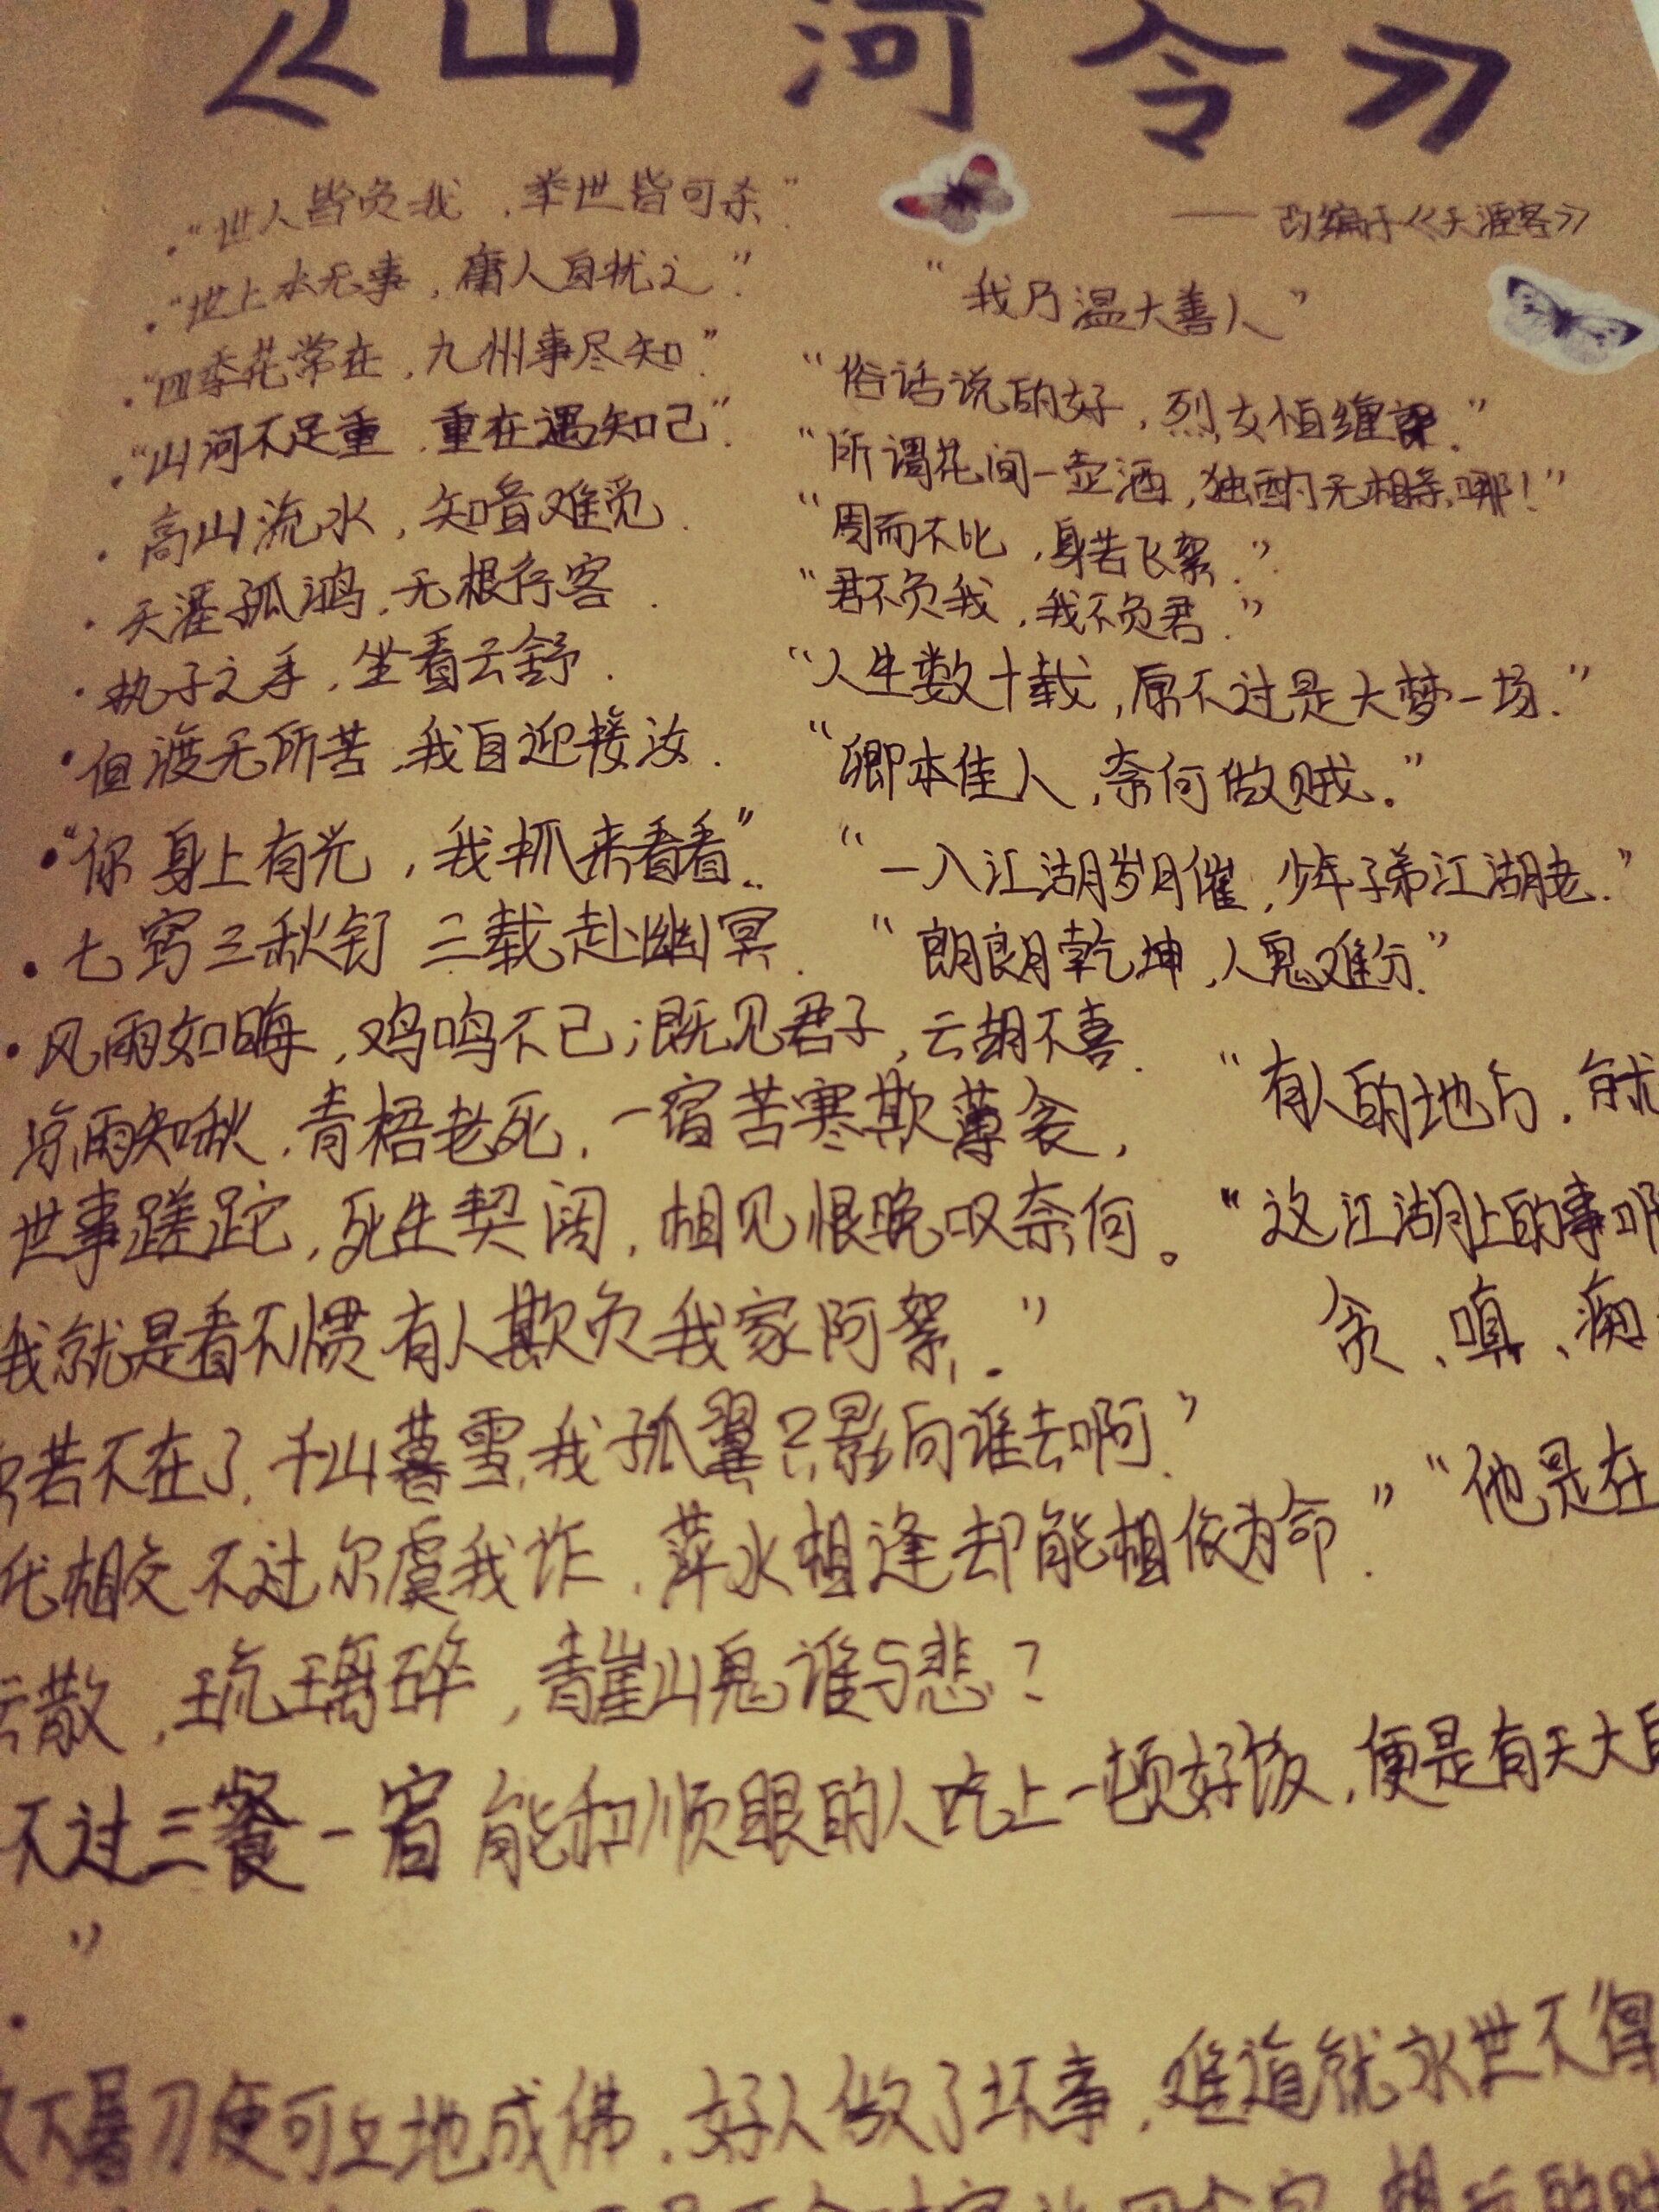 《山河令》
——改编于《天涯客》
·“世人皆负我,举世皆可杀.”
·“世上本无事,庸人自扰之”.
·“四季花常在,九州事尽知”.
·“山河不足重,重在遇知己”.
· 高山流水,知音难觅.
· 天涯孤鸿,无根行客.
· 执子之手,坐看云舒.
· 但渡无所苦,我自迎接汝.
·“你身上有光,我抓来看看”.
· 七窍三秋钉 三载赴幽冥.
· 风雨如晦,鸡鸣不已;既见君子,云胡不喜.
凉雨知秋,青梧老死,一宿苦寒欺薄衾,
世事蹉跎,死生契阔,相见恨晚叹奈何。
我就是看不惯有人欺负我家阿絮.”
若不在了,千山暮雪,我孤翼只影向谁去啊.”
代相交不过尔虞我诈,萍水相逢却能相依为命.”
云散,琉璃碎,青崖山鬼谁与悲?
不过三餐一宿 能和顺眼的人吃上一顿好饭,便是有天大
”
·
不暑刀便可立地成佛,好人做了坏事,难道就永世不得
“我乃温大善人”
“俗话说的好,烈女怕缠郎.”
“所谓花间一壶酒,独酌无相亲哪!”
“周而不比,身若飞絮.”
“君不负我,我不负君.”
“人生数十载,原不过是大梦一场.”
“卿本佳人,奈何做贼。”
“一入江湖岁月催,少年子弟江湖老.”
“朗朗乾坤,人鬼难分.”
“有人的地方,就
“这江湖上的事啊
贪、嗔、痴
“他是在